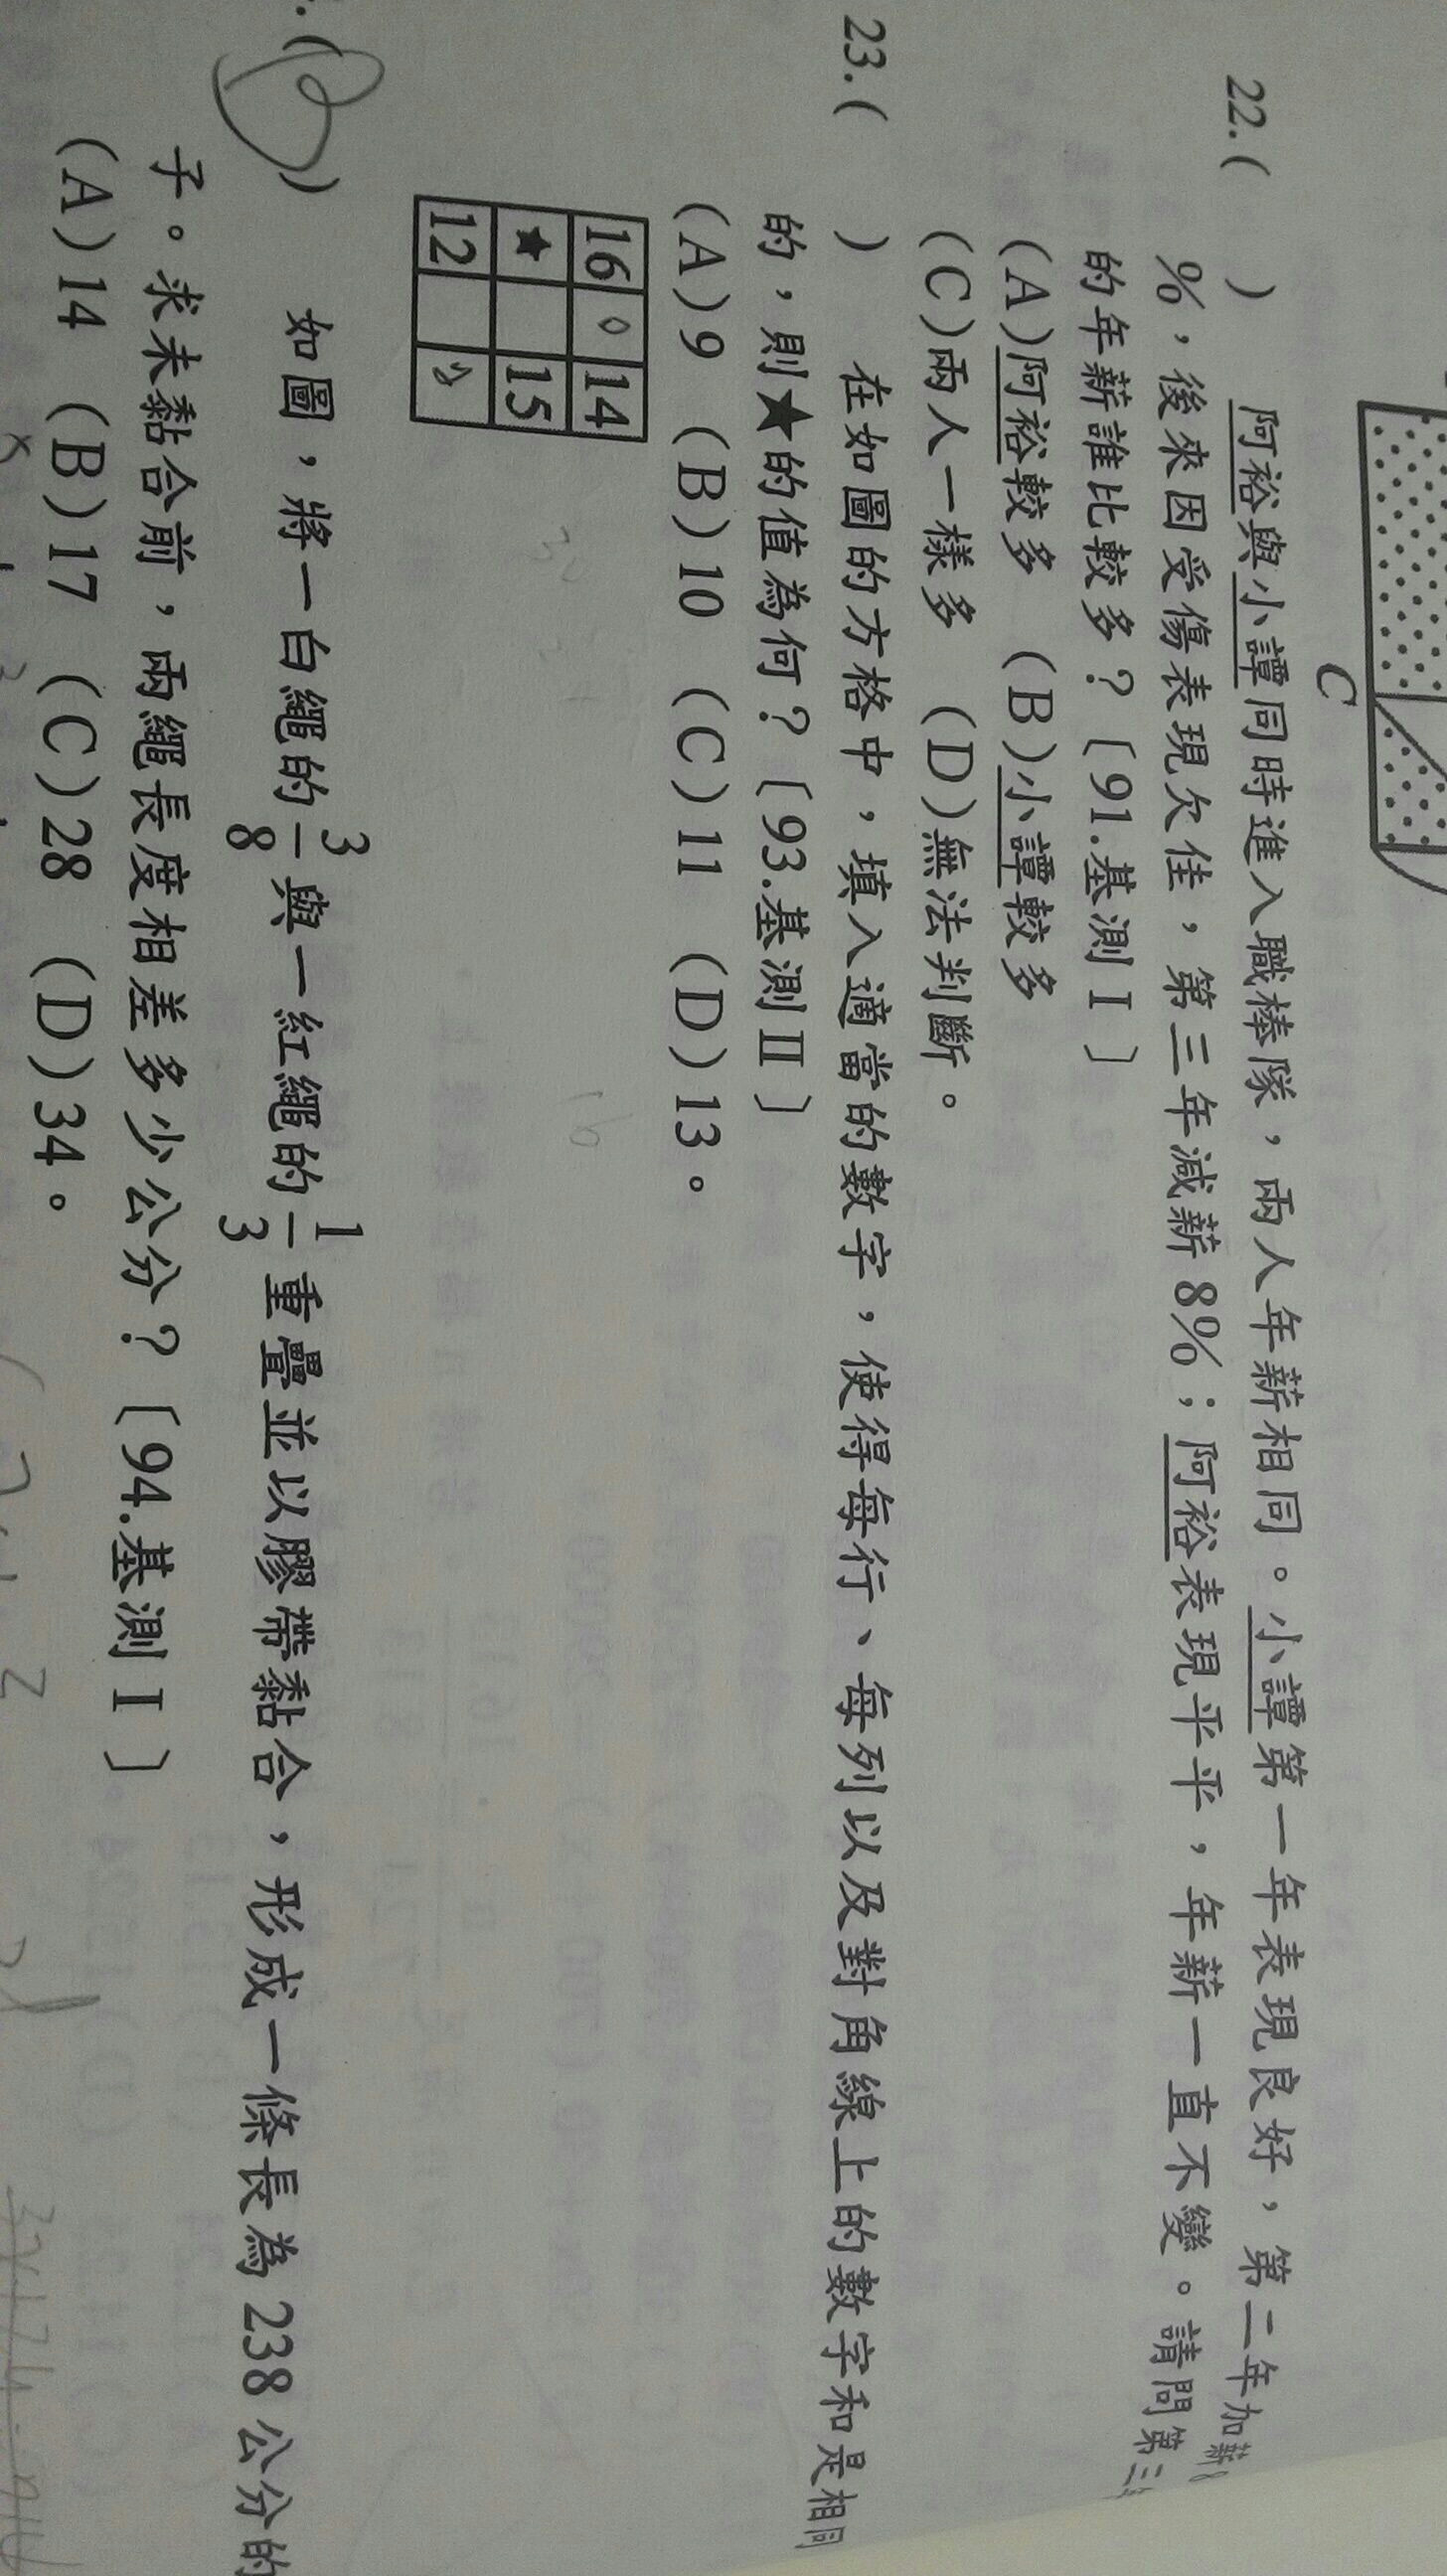 C
22.( ) 阿裕與小譚同時進入職棒隊，兩人年薪相同。小譚第一年表現良好，第二年加薪8
%，後來因受傷表現欠佳，第三年減薪8%；阿裕表現平平，年薪一直不變。請問第三年
的年薪誰比較多？〔91.基測Ⅰ〕
(A)阿裕較多 (B)小譚較多
(C)兩人一樣多 (D)無法判斷。
23.( ) 在如圖的方格中，填入適當的數字，使得每行、每列以及對角線上的數字和是相同
的，則★的值為何？〔93.基測Ⅱ〕
(A)9 (B)10 (C)11 (D)13。
16 14
★ 15
12
16
.(B) 如圖，將一白繩的3/8與一紅繩的1/3重疊並以膠帶黏合，形成一條長為238公分的
子。求未黏合前，兩繩長度相差多少公分？〔94.基測Ⅰ〕
(A)14 (B)17 (C)28 (D)34。